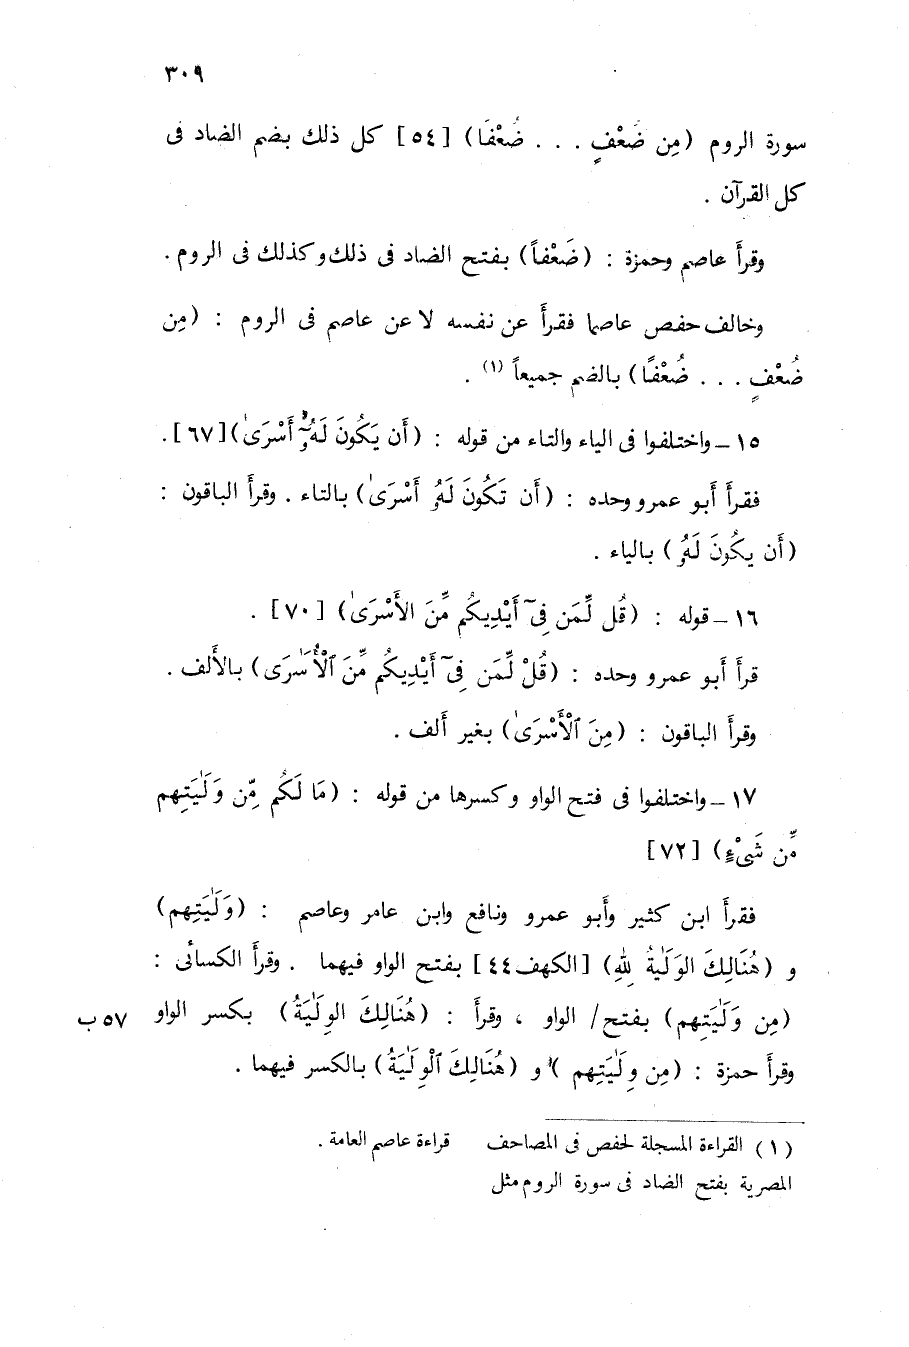 ٣٠٩
سورة الروم (مِن ضُعْفٍ . . . ضُعْفًا) [٥٤] كل ذلك بضم الضاد فى
كل القرآن .
وقرأ عاصم وحمزة : (ضَعْفاً) بفتح الضاد فى ذلك وكذلك فى الروم .
وخالف حفص عاصما فقرأ عن نفسه لا عن عاصم فى الروم : (مِن
ضُعْفٍ . . . ضُعْفًا) بالضم جميعاً (١) .
١٥ – واختلفوا فى الياء والتاء من قوله : (أَن يَكُونَ لَهُۥٓ أَسْرَىٰ) [٦٧] .
فقرأ أبو عمرو وحده : (أَن تَكُونَ لَهُۥ أَسْرَىٰ) بالتاء . وقرأ الباقون :
(أَن يكُونَ لَهُۥ) بالياء .
١٦ – قوله : (قُل لِّمَن فِىٓ أَيْدِيكُم مِّنَ الأَسْرَىٰ) [٧٠] .
قرأ أبو عمرو وحده : (قُلْ لِّمَن فِىٓ أَيْدِيكُم مِّنَ ٱلْأُسَٰرَى) بالألف .
وقرأ الباقون : (مِنَ ٱلْأَسْرَىٰ) بغير ألف .
١٧ – واختلفوا فى فتح الواو وكسرها من قوله : (مَا لَكُم مِّن وَلَٰيَتِهِم
مِّن شَىْءٍ) [٧٢]
فقرأ ابن كثير وأبو عمرو ونافع وابن عامر وعاصم : (وَلَٰيَتِهِم)
و (هُنَالِكَ الوَلَٰيةُ لِلّٰهِ) [الكهف ٤٤] بفتح الواو فيهما . وقرأ الكسائى :
(مِن وَلَٰيَتِهِم) بفتح / الواو ، وقرأ : (هُنَالِكَ الوِلَٰيَةُ) بكسر الواو ٥٧ ب
وقرأ حمزة : (مِن وِلَٰيَتِهِم) و (هُنَالِكَ ٱلْوِلَٰيَةُ) بالكسر فيهما .
(١) القراءة المسجلة لحفص فى المصاحف قراءة عاصم العامة .
المصرية بفتح الضاد فى سورة الروم مثل